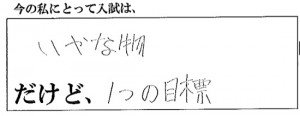 今の私にとって入試は、
いやな物
だけど、1つの目標